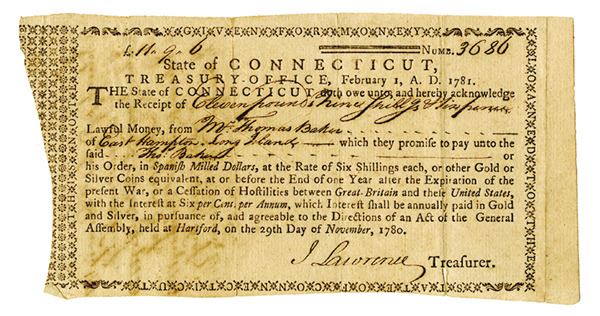 GIVEN FOR MONEY
£. 11. 9. 6 NUMB. 3686
State of CONNECTICUT,
TREASURY-OFFICE, February 1, A. D. 1781.
THE State of CONNECTICUT, doth owe unto, and hereby acknowledge
the Receipt of Eleven pounds Nine Shillgs & Six pence
Lawful Money, from Mr. Thomas Baker
of East Hampton Long Island which they promise to pay unto the
said Thos. Baker or
his Order, in Spanish Milled Dollars, at the Rate of Six Shillings each, or other Gold or
Silver Coins equivalent, at or before the End of one Year after the Expiration of the
present War, or a Cessation of Hostilities between Great-Britain and these United States,
with the Interest at Six per Cent. per Annum, which Interest shall be annually paid in Gold
and Silver, in pursuance of, and agreeable to the Directions of an Act of the General
Assembly, held at Hartford, on the 29th Day of November, 1780.
J Lawrence Treasurer.
LOANED TO THE
STATE OF CONNECTICUT